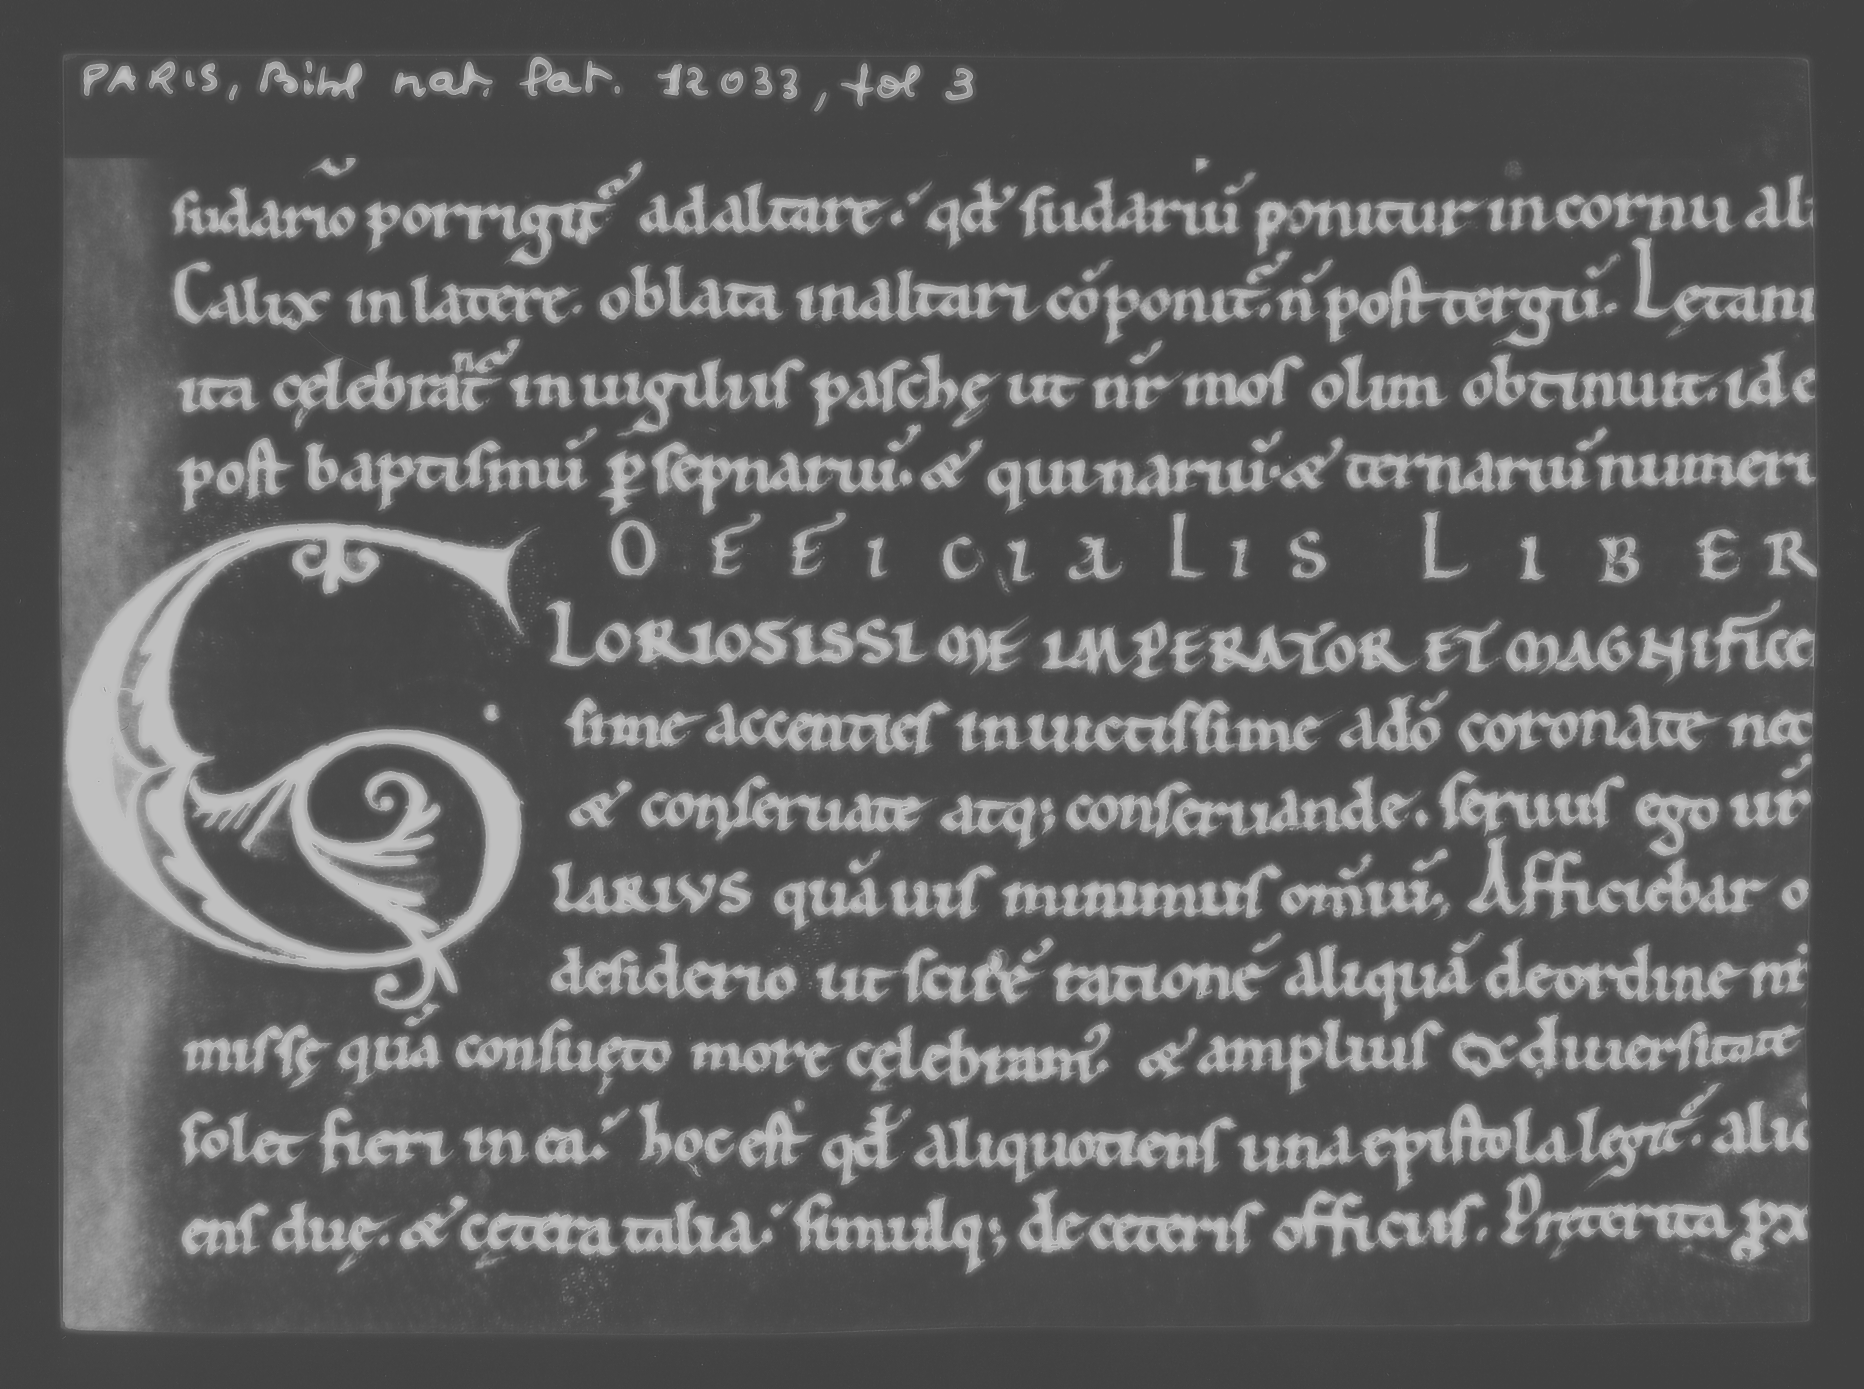 PARIS, Bibl nat. lat. 12033, fol 3
sudario porrigit̃ ad altare. qđ sudariũ ponitur in cornu alt
Calix in latere. oblata in altari cõponit̃. ñ post tergũ. Lętani
ita cęlebrant̃ in uigiliis paschę ut nr̃ mos olim obtinuit. id e
post baptismũ p̲ sep̲nariũ. & quinariũ. & ternariũ numeri
O F F I C I A L I S L I B E R
G LORIOSISSIME IMPERATOR ET MAGNIFICE
sime accenties inuictissime a dõ coronate nec
& conseruate atq; conseruande. seruus ego ur̃
LARIVS quãuis minimus om̃iũ; Afficiebar o
desiderio ut scirẽ rationẽ aliquã de ordine nr̃
missę quã consuęto more cęlebram᾽ & amplius ex diuersitate
solet fieri in ea. hoc est qđ aliquotiens una epistola legit̃. alic
ens duę. & cętera talia. simulq; de ceteris officiis. Pręterita p̲ x